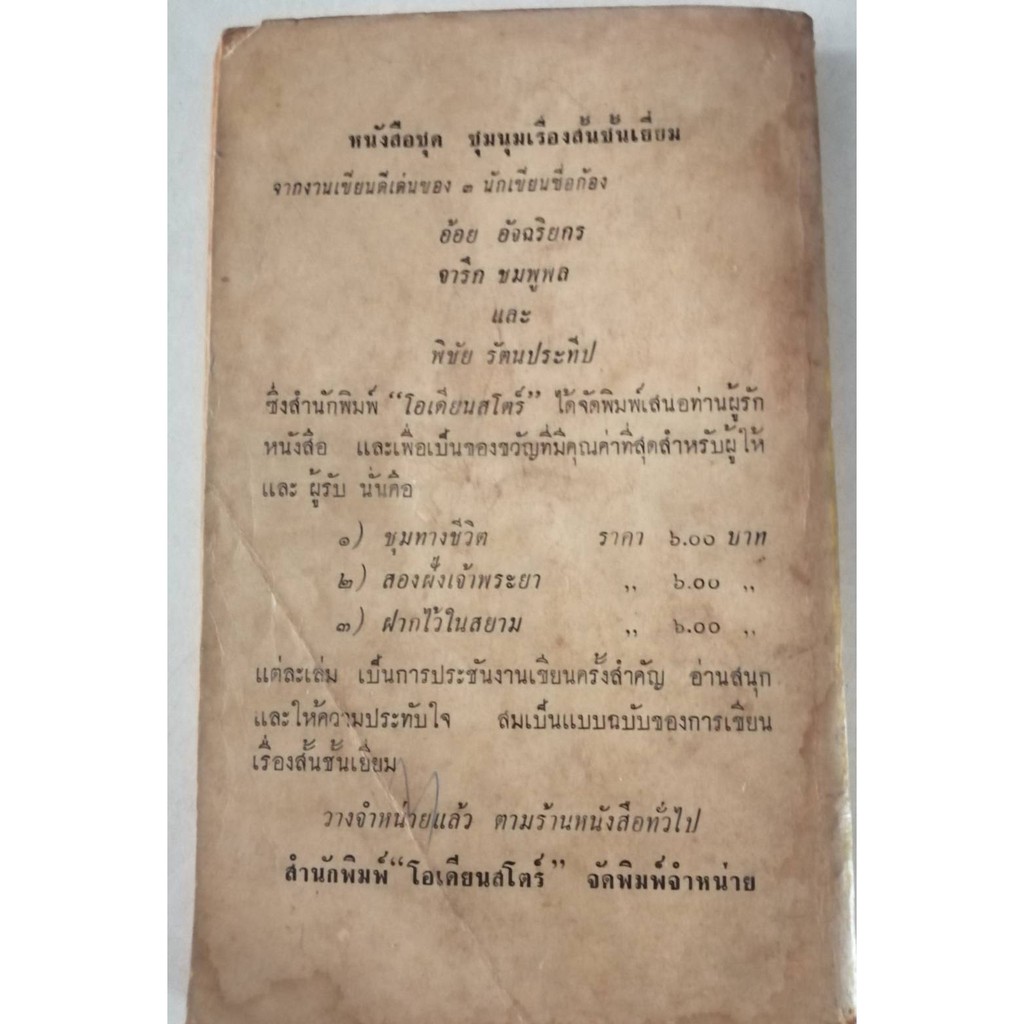 หนังสือชุด ชุมนุมเรื่องสั้นชั้นเยี่ยม
จากงานเขียนดีเด่นของ ๓ นักเขียนชื่อก้อง
อ้อย อัจฉริยกร
จารึก ชมพูพล
และ
พิชัย รัตนประทีป
ซึ่งสำนักพิมพ์ “โอเดียนสโตร์” ได้จัดพิมพ์เสนอท่านผู้รัก
หนังสือ และเพื่อเป็นของขวัญที่มีคุณค่าที่สุดสำหรับผู้ให้
และ ผู้รับ นั่นคือ
๑) ชุมทางชีวิต ราคา ๖.๐๐ บาท
๒) สองฝั่งเจ้าพระยา ,, ๖.๐๐ ,,
๓) ฝากไว้ในสยาม ,, ๖.๐๐ ,,
แต่ละเล่ม เป็นการประชันงานเขียนครั้งสำคัญ อ่านสนุก
และให้ความประทับใจ สมเป็นแบบฉบับของการเขียน
เรื่องสั้นชั้นเยี่ยม
วางจำหน่ายแล้ว ตามร้านหนังสือทั่วไป
สำนักพิมพ์ “โอเดียนสโตร์” จัดพิมพ์จำหน่าย